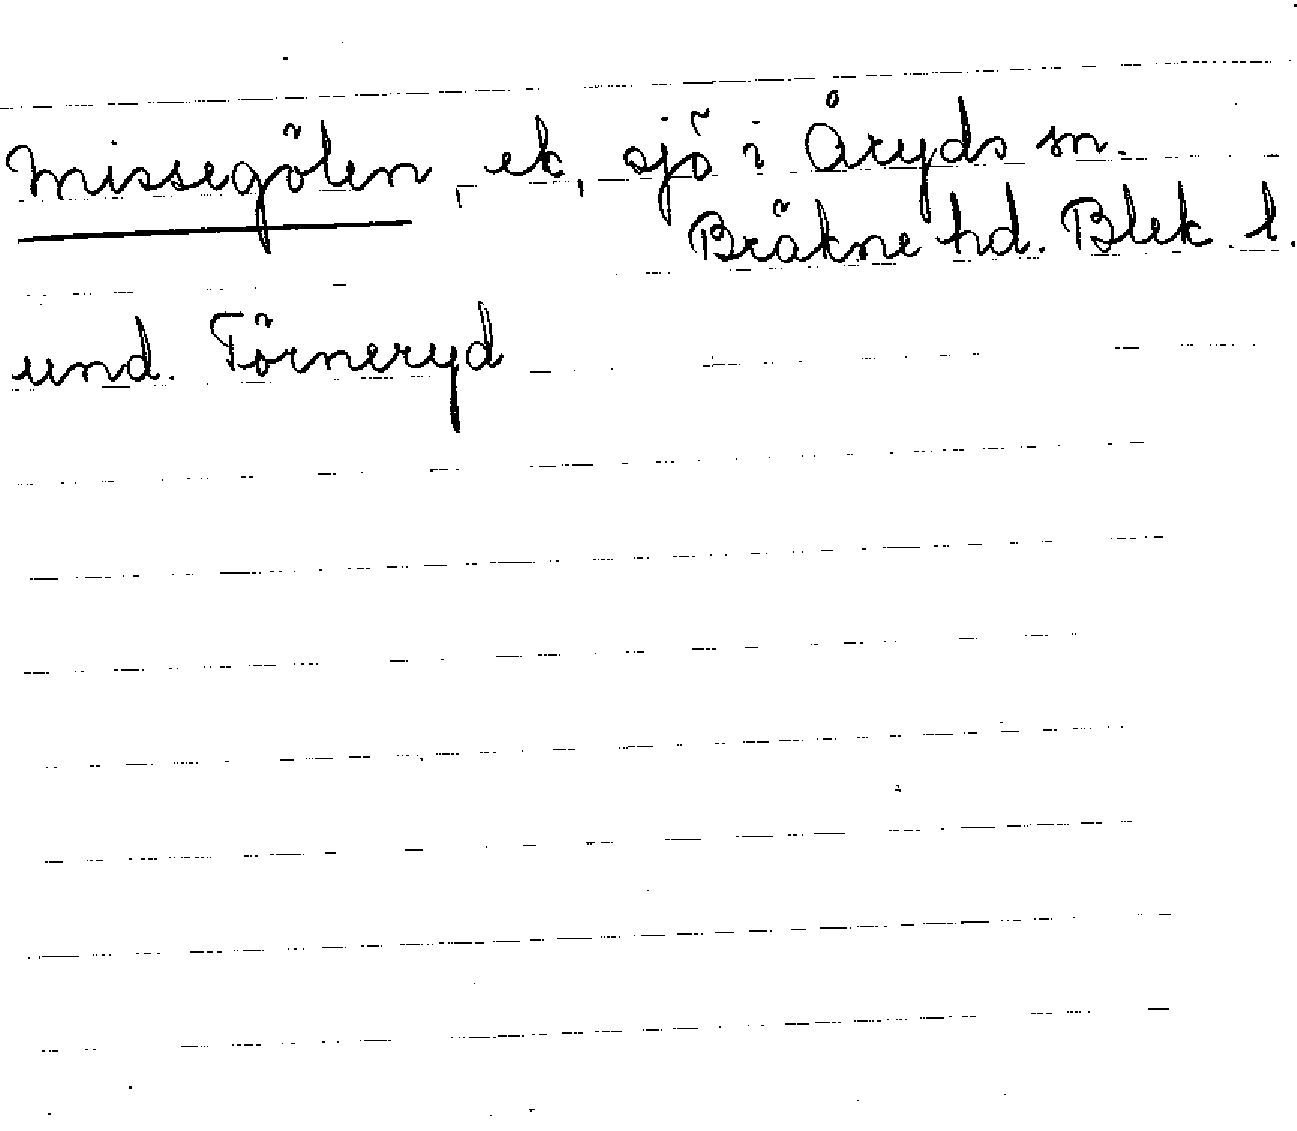 Missegölen, ek, sjö i Åryds sn.
Bräkne hd. Blek. l.
und. Törneryd